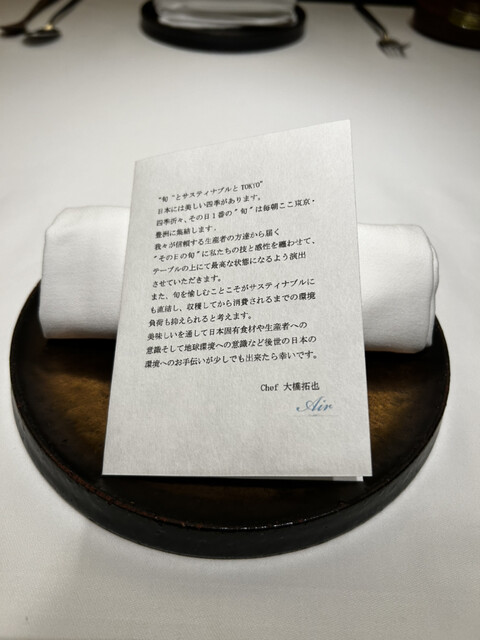 “旬”とサスティナブルとTOKYO”
日本には美しい四季があります。
四季折々、その日１番の“旬”は毎朝ここ東京・
豊洲に集結します。
我々が信頼する生産者の方達から届く
“その日の旬”に私たちの技と感性を纏わせて、
テーブルの上にて最高な状態になるよう演出
させていただきます。
また、旬を愉しむことこそがサスティナブルに
も直結し、収穫してから消費されるまでの環境
負荷も抑えられると考えます。
美味しいを通して日本固有食材や生産者への
意識そして地球環境への意識など後世の日本の
環境へのお手伝いが少しでも出来たら幸いです。
Chef 大橋拓也
Air